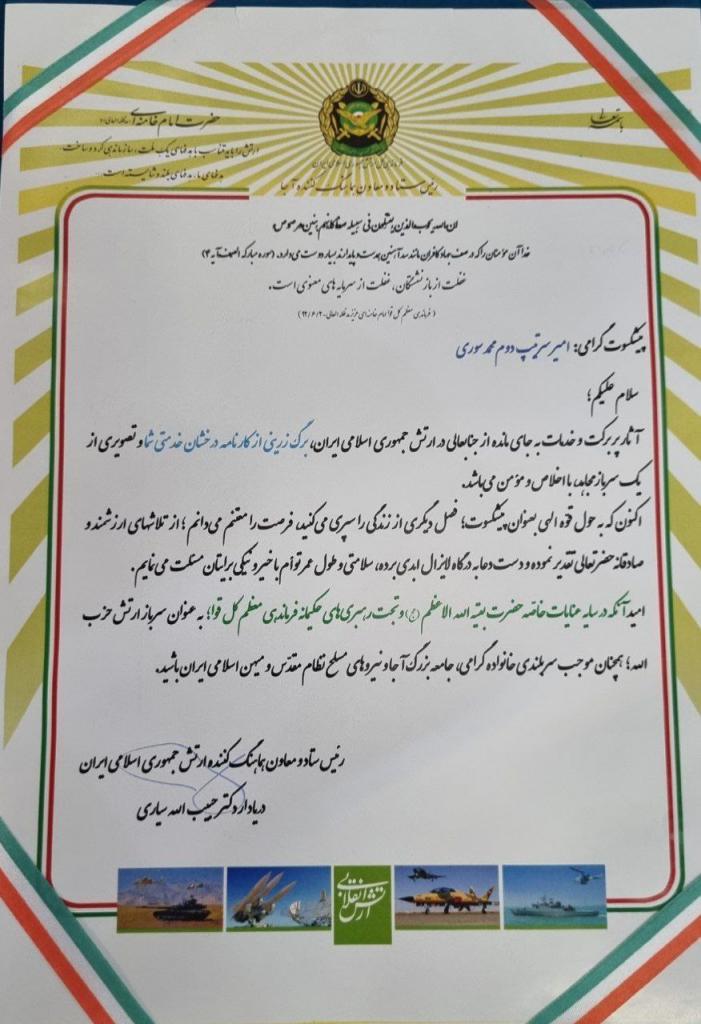 باسمه تعالی
حضرت امام خامنه ای
ارتش را باید متناسب با بدفهای یک ملت، سازماندهی کرد و ساخت.
بدفهای ما، بدفهای بلند و شایسته است.
فرماندهی کل ارتش جمهوری اسلامی ایران
رئیس ستاد و معاون هماهنگ کننده آجا
ان الله یحب الذین یقاتلون فی سبیله صفا کانهم بنیان مرصوص
خدا آن مؤمنان را که در صف جهاد کافران مانند سد آهنین همدست و پایدارند بسیار دوست می دارد. (سوره مبارکه الصف آیه ۴)
غفلت از بازنشستگان، غفلت از سرمایه های معنوی است.
(فرماندهی معظم کل قوا امام خامنه ای عزیز مدظله العالی-۹۲/۶/۲۰)
پیشکسوت گرامی: امیر سرتیپ دوم محمد سوری
سلام علیکم؛
آثار پر برکت و خدمات به جای مانده از جنابعالی در ارتش جمهوری اسلامی ایران، برگ زرینی از کارنامه درخشان خدمتی شما و تصویری از
یک سرباز مجاهد، با اخلاص و مؤمن می باشد.
اکنون که به حول قوه الهی بعنوان پیشکسوت؛ فصل دیگری از زندگی را سپری می کنید، فرصت را مغتنم می دانم؛ از تلاشهای ارزشمند و
صادقانه حضرتعالی تقدیر نموده و دست دعا به درگاه لایزال ابدی برده، سلامتی و طول عمر توأم با خیر و نیکی برایتان مسئلت می نمایم.
امید آنکه در سایه عنایات خاصّه حضرت بقیه الله الاعظم (عج) و تحت رهبری های حکیمانه فرماندهی معظم کل قوا؛ به عنوان سرباز ارتش حزب
الله؛ همچنان موجب سربلندی خانواده گرامی، جامعه بزرگ آجا و نیروهای مسلح نظام مقدّس و میهن اسلامی ایران باشید.
رئیس ستاد و معاون هماهنگ کننده ارتش جمهوری اسلامی ایران
دریادار دکتر حبیب الله سیاری
ارتش انقلابی